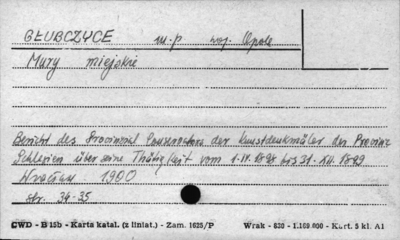 GŁUBCZYCE m-p woj. Opole
Mury miejskie
Bericht des Provinzial Conservators der Kunstdenkmäler der Provinz
Schlesien über seine Thätigkeit vom 1.IV.1898 bis 31.XII.1899
Wrocław 1900
str. 34-35
CWD - B 15b - Karta katal. (z liniat.) - Zam. 1625/P Wrak - 630 - 1.168 000 - Kart. 5 kl. A1